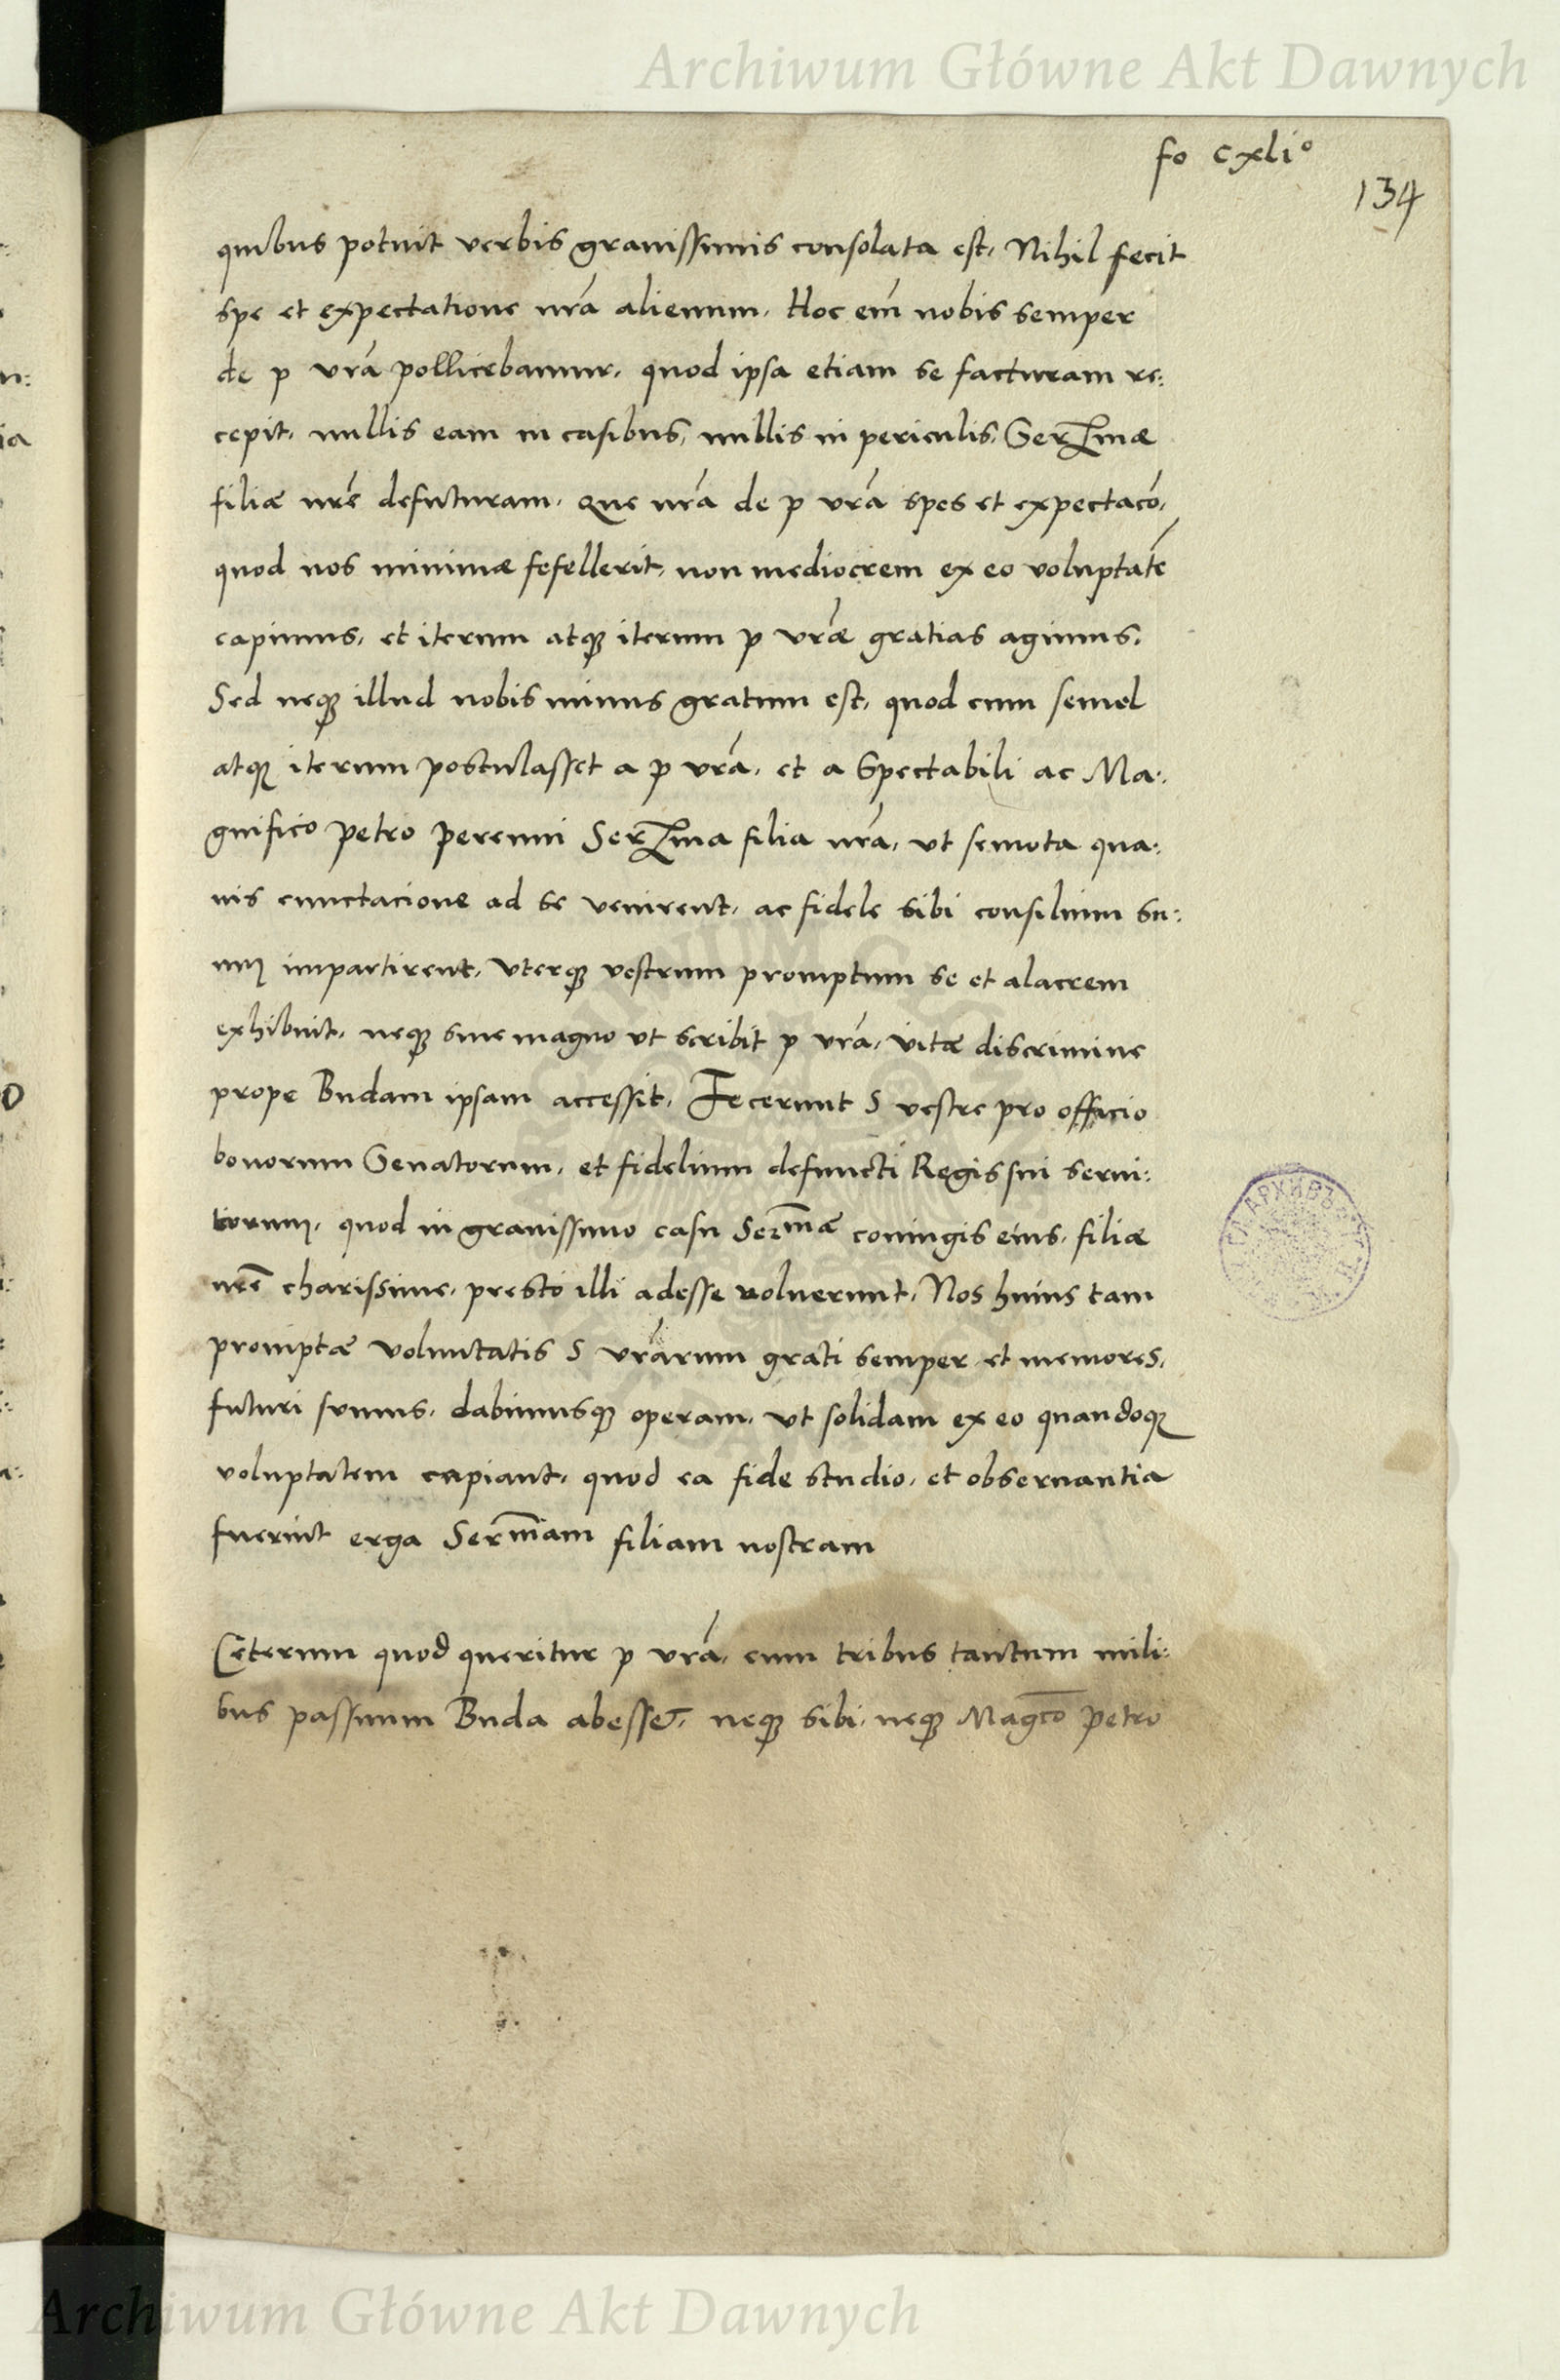 Archiwum Główne Akt Dawnych
fo cxliº
134
quibus potuit verbis grauissimis consolata est, Nihil fecit
spe et expectatione nrã alienum, Hoc em̃ nobis semper
de p vrã pollicebamur, quod ipsa etiam se facturam re:
cepit, nullis eam in casibus, nullis in periculis, Serᷤmæ
filiæ nrẽ defuturam, Que nrã de p vrã spes et expectacõ,
quod nos minimæ fefellerit, non mediocrem ex eo voluptatẽ
capimus, et iterum atqꝫ iterum p vrãe gratias agimus.
Sed neqꝫ illud nobis minus gratum est, quod cum semel
atqꝫ iterum postulasset a p vrã, et a Spectabili ac Ma:
gnifico petro perenni Serᷤma filia nrã, vt semota qua:
uis cunctacione ad se venirent, ac fidele sibi consilium su:
um impartirent, vterqꝫ vestrum promptum se et alacrem
exhibuit, neqꝫ sine magno vt scribit p vrã, vitæ discrimine
prope Budam ipsam accessit, Fecerunt S vestre pro officio
bonorum Senatorum, et fidelium defuncti Regis sui serui:
torum, quod in grauissimo casu Serᵐæ coniugis eius, filiæ
nrẽ charissime, presto illi adesse voluerunt, Nos huius tam
promptæ voluntatis S vrãrum grati semper et memores,
futuri sumus, dabimusqꝫ operam, vt solidam ex eo quandoqꝫ
voluptatem capiant, quod ea fide studio, et obseruantia
fuerint erga Serᵐam filiam nostram
Ceterum quod queritur p vrã, cum tribus tantum mili:
bus passuum Buda abesset, neqꝫ sibi, neqꝫ Magco̅ petro
Archiwum Główne Akt Dawnych